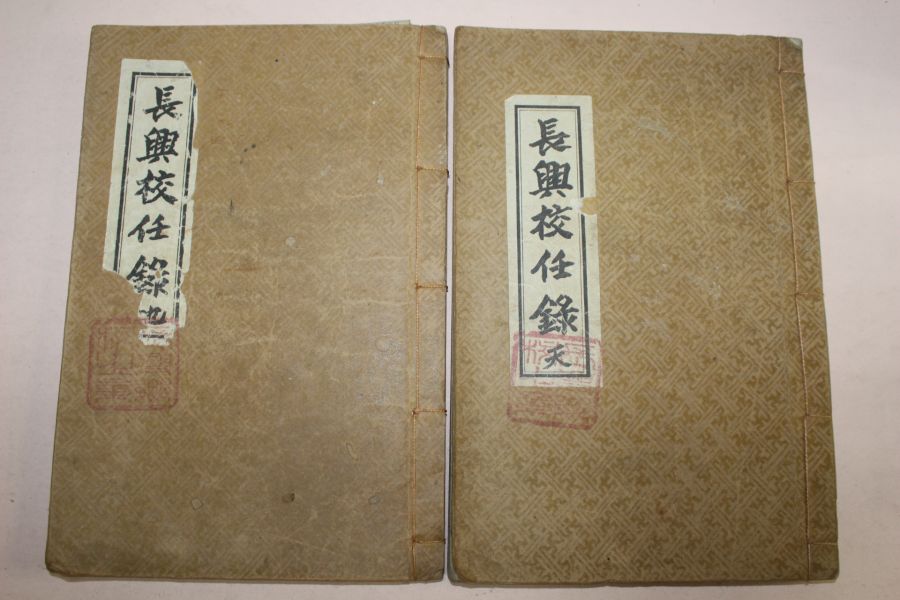 長興校任錄 天
長興校任錄 地